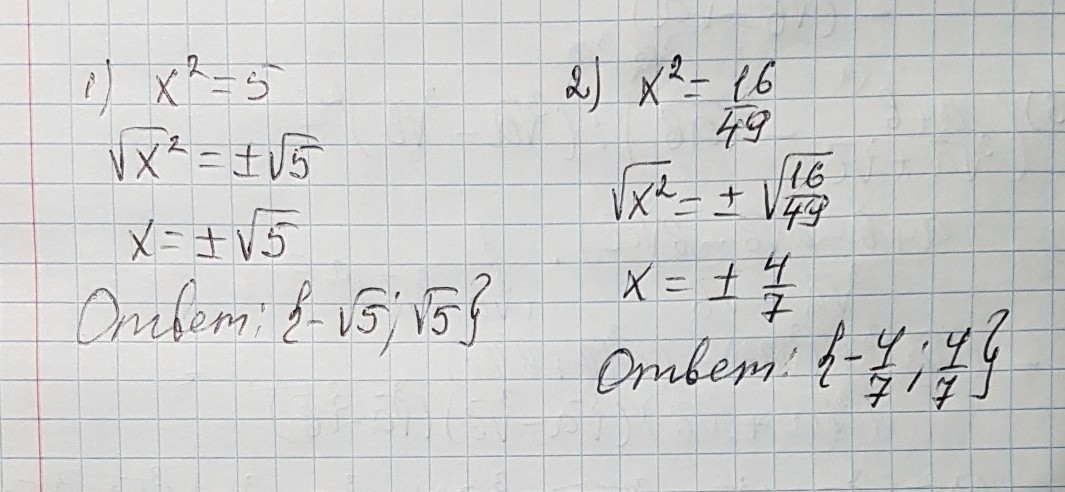 1) x² = 5
√x² = ±√5
x = ±√5
Ответ: {-√5; √5}
2) x² = 16/49
√x² = ± √16/49
x = ± 4/7
Ответ: {-4/7; 4/7}